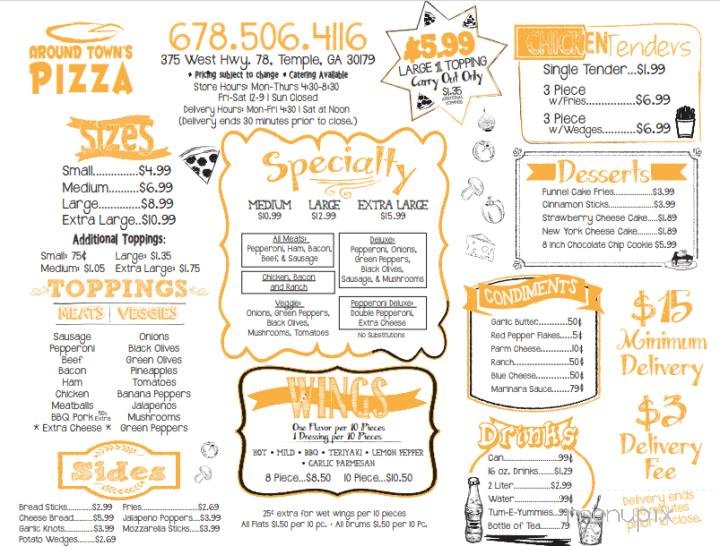 AROUND TOWN'S
PIZZA
678.506.4116
375 West Hwy. 78, Temple, GA 30179
• Pricing subject to change • Catering Available
Store Hours: Mon-Thurs 4:30-8:30
Fri-Sat 12-9 | Sun Closed
Delivery Hours: Mon-Fri 4:30 | Sat at Noon
(Delivery ends 30 minutes prior to close.)
$5.99
LARGE 1 TOPPING
Carry Out Only
$1.35
ADDITIONAL
TOPPINGS
CHICKEN Tenders
Single Tender...$1.99
3 Piece
w/Fries..............$6.99
3 Piece
w/Wedges..........$6.99
Sizes
Small..............$4.99
Medium..........$6.99
Large.............$8.99
Extra Large..$10.99
Additional Toppings:
Small: 75¢ Large: $1.35
Medium: $1.05 Extra Large: $1.75
TOPPINGS
MEATS | VEGGIES
Sausage Onions
Pepperoni Black Olives
Beef Green Olives
Bacon Pineapples
Ham Tomatoes
Chicken Banana Peppers
Meatballs Jalapenos
BBQ Pork 50¢ Extra Mushrooms
* Extra Cheese * Green Peppers
Sides
Bread Sticks........$2.99 Fries...................$2.69
Cheese Bread.....$5.99 Jalapeno Poppers...$3.99
Garlic Knots........$3.99 Mozzarella Sticks....$3.99
Potato Wedges...$2.69
Specialty
MEDIUM LARGE EXTRA LARGE
$10.99 $12.99 $15.99
All Meats:
Pepperoni, Ham, Bacon,
Beef, & Sausage
Chicken, Bacon
and Ranch
Veggie:
Onions, Green Peppers,
Black Olives,
Mushrooms, Tomatoes
Deluxe:
Pepperoni, Onions,
Green Peppers,
Black Olives,
Sausage, & Mushrooms
Pepperoni Deluxe:
Double Pepperoni,
Extra Cheese
No Substitutions
WINGS
One Flavor per 10 Pieces
1 Dressing per 10 Pieces
HOT • MILD • BBQ • TERIYAKI • LEMON PEPPER
• GARLIC PARMESAN
8 Piece...$8.50 10 Piece...$10.50
25¢ extra for wet wings per 10 pieces
All Flats $1.50 per 10 pc. • All Drums $1.50 per 10 Pc.
Desserts
Funnel Cake Fries..............$3.99
Cinnamon Sticks...............$3.99
Strawberry Cheese Cake.....$1.89
New York Cheese Cake.......$1.89
8 Inch Chocolate Chip Cookie $5.99
CONDIMENTS
Garlic Butter............50¢
Red Pepper Flakes.....5¢
Parm Cheese...........10¢
Ranch.....................50¢
Blue Cheese............50¢
Marinara Sauce......79¢
Drinks
Can....................99¢
16 oz. Drinks......$1.29
2 Liter..............$2.99
Water.................99¢
Tum-E-Yummies...99¢
Bottle of Tea......79
$15
Minimum
Delivery
$3
Delivery
Fee
Delivery ends
minutes
prior to close.
menupix